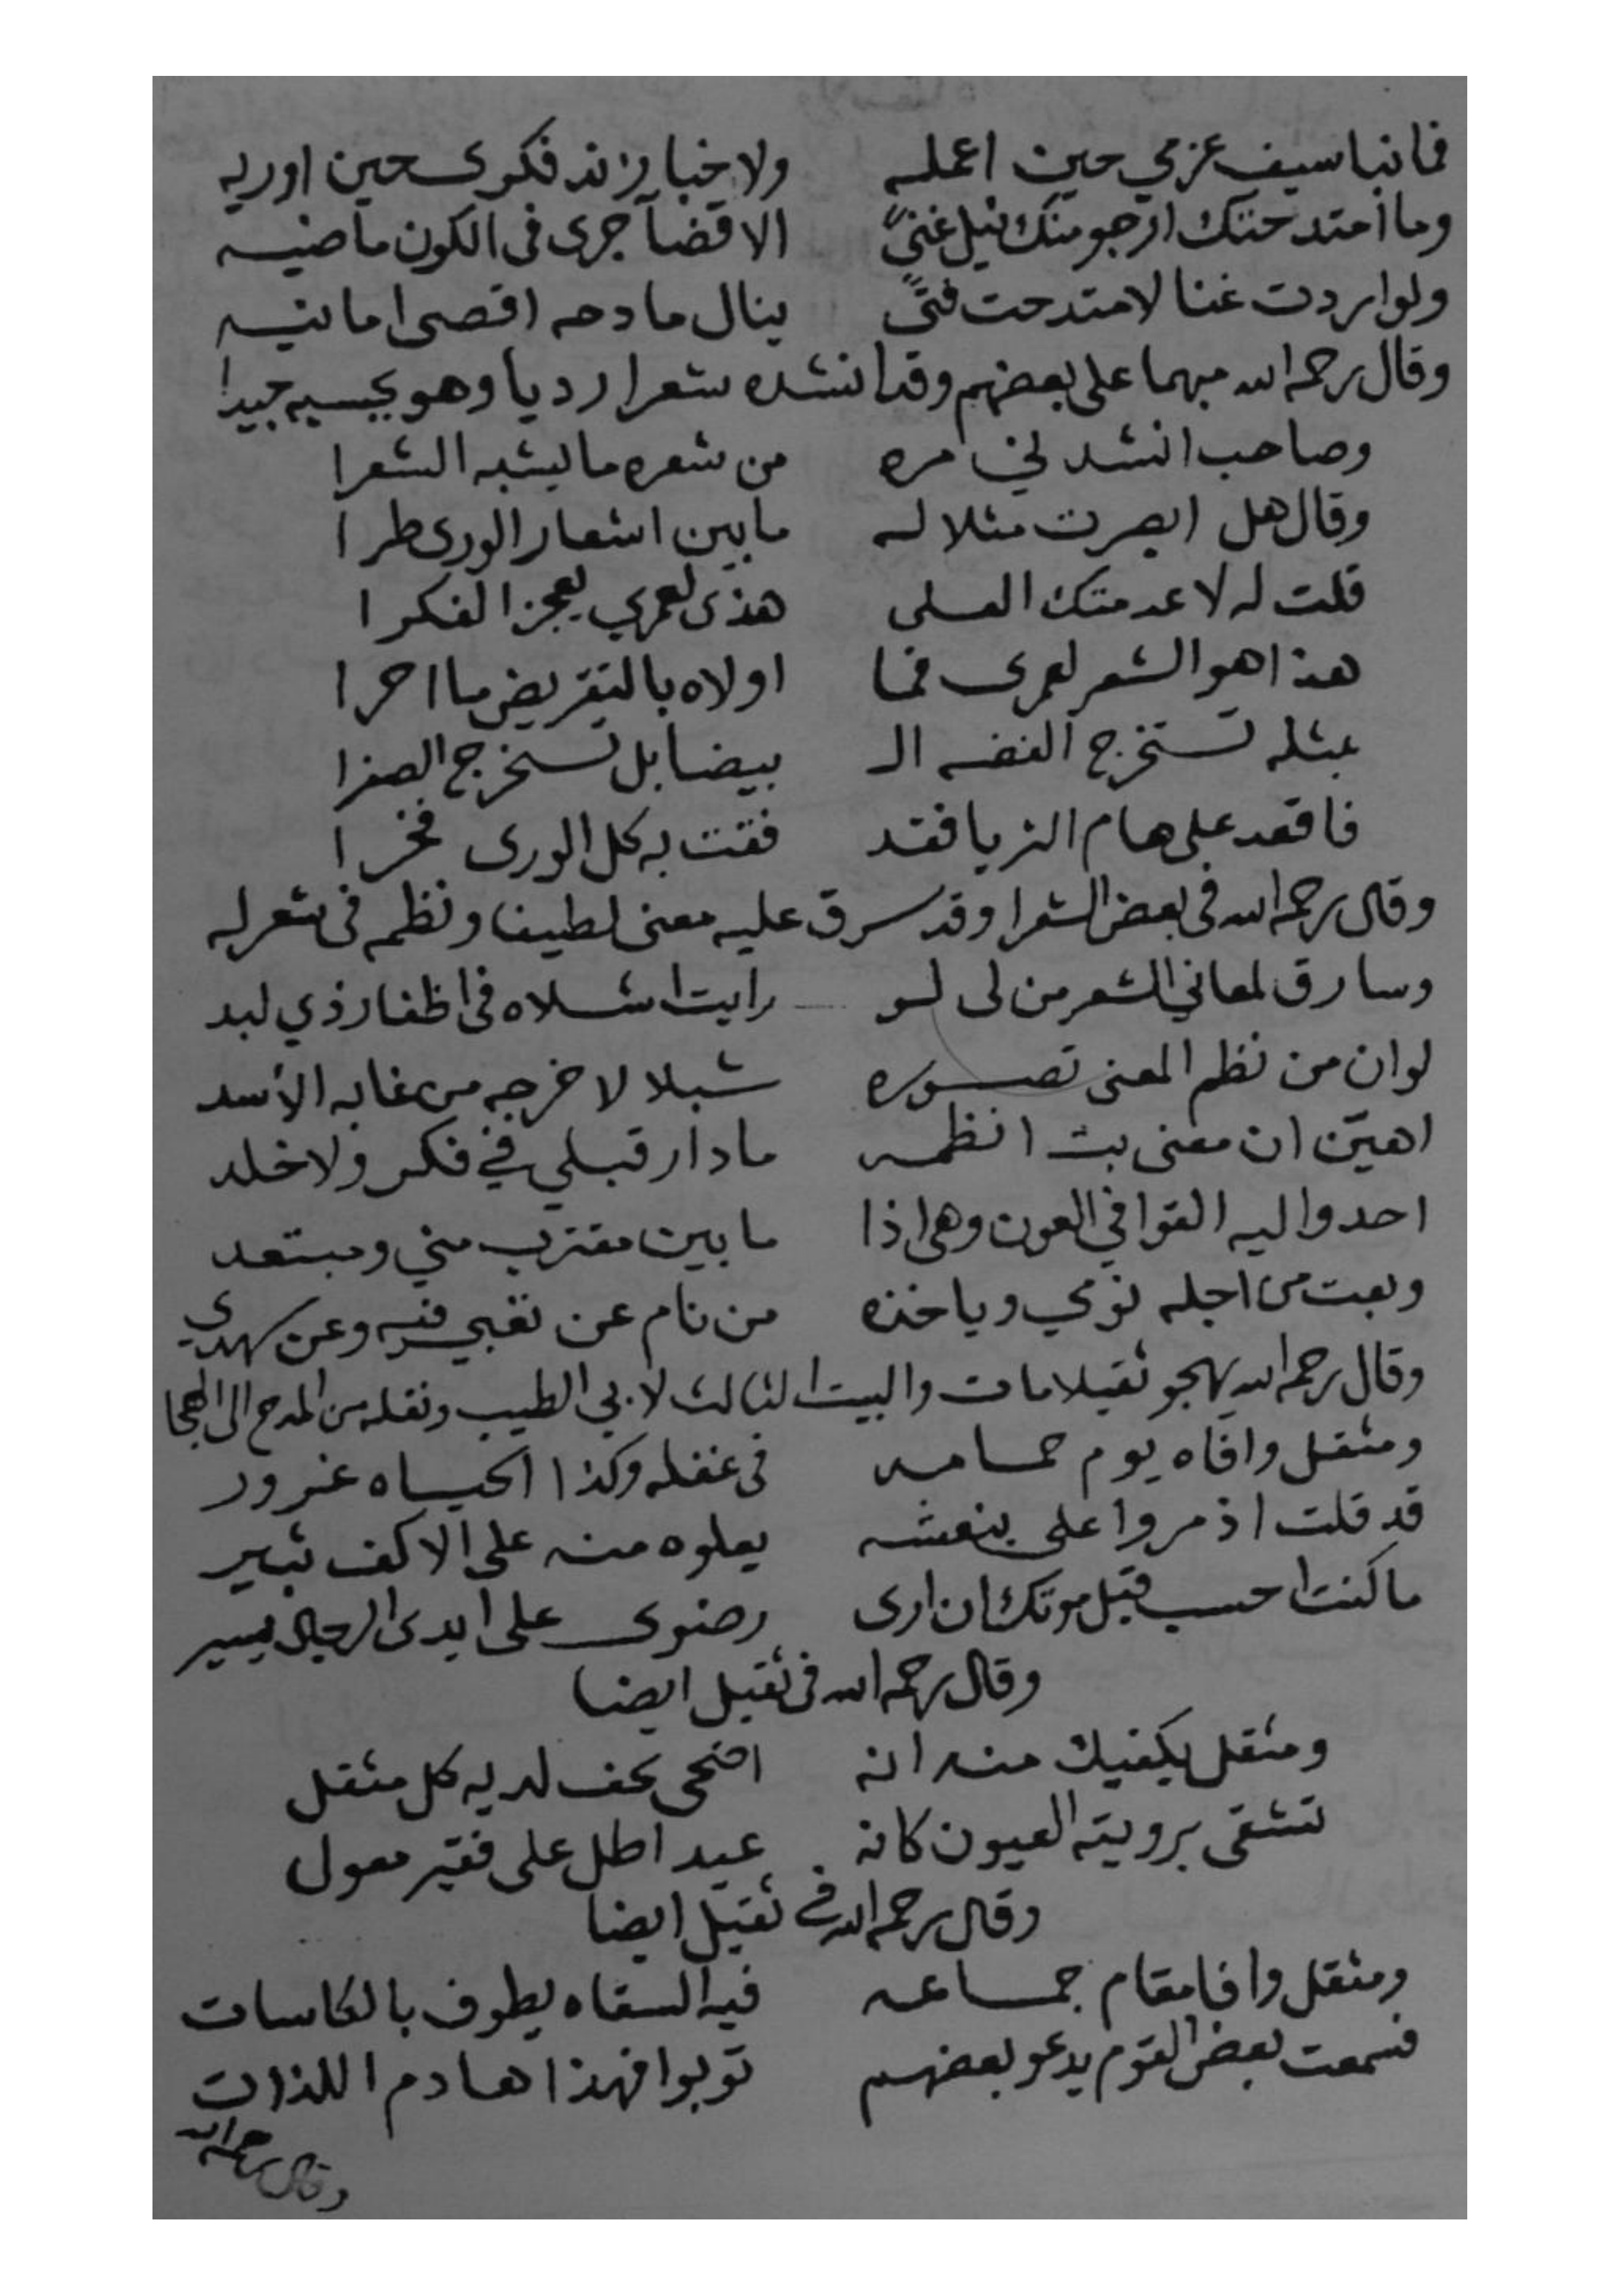 فما نبا سيف عزمي حين اعمله ولا خبا زند فكرى حين اوريه
وما امتدحتك ارجو منك نيل غنىً الا قضاً جرى فى الكون ماضيه
ولو اردت غنا لامتدحت فتىً ينال مادحه اقصى امانيه
وقال رحمه الله مبهما على بعضهم وقد انشده شعرا رديا وهو يحسبه جيدا
وصاحب انشدني مره من شعره ما يشبه الشعرا
وقال هل ابصرت مثلا له ما بين اشعار الورى طرا
قلت له لا عدمتك العلى هذى لعمري يعجز الفكرا
هذا هو الشعر لعمرى فما اولاه بالتقريض ما احرا
بمثله تستخرج الفضه الـ بيضا بل تستخرج الصفرا
فاقعد على هام الثريا فقد فقت به كل الورى فخرا
وقال رحمه الله فى بعض الشعرا وقد سرق عليه معنى لطيفا ونظمه فى شعر له
وسارق لمعاني الشعر من لى لو رايت اشلاه فى اظفار ذي لبد
لو ان من نظم المعنى تصوره شبلا لاخرجه من غابه الأسد
اهين ان معنى بت انظمه ما دار قبلي في فكر ولا خلد
احدوا اليه القوافي العون وهى اذا ما بين مقترب مني ومبتعد
وبعت من اجله نومي وياخذه من نام عن تعبي فيه وعن سهدي
وقال رحمه الله يهجو ثقيلا مات والبيت الثالث لابي الطيب ونقله من المدح الى الهجا
ومثقل وافاه يوم حمامه فى غفله وكذا الحياه غرور
قد قلت اذ مروا على بنعشه يعلوه منه على الاكف ثبير
ما كنت احسب قبل موتك ان ارى رضوى على ايدى الرجال يسير
وقال رحمه الله فى ثقيل ايضا
ومثقل يكفيك منه انه اضحى يخف لديه كل مثقل
تشقى برويته العيون كانه عيد اطل على فقير معول
وقال رحمه الله فى ثقيل ايضا
ومثقل وافا مقام جماعه فيه السقاه يطوف بالكاسات
فسمعت بعض القوم يدعو بعضهم توبوا فهذا هادم اللذات
وقال رحمه الله